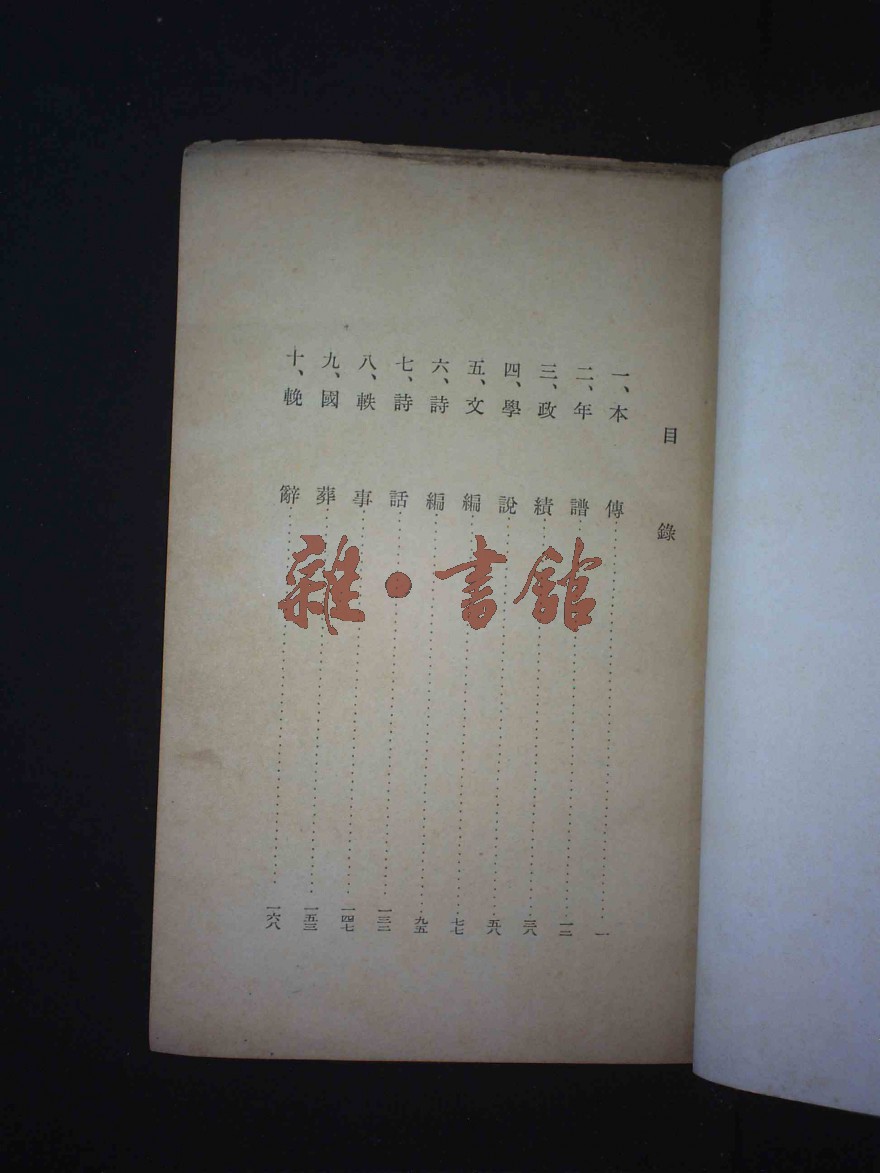 目錄
一、本傳⋯⋯一
二、年譜⋯⋯一二
三、政績⋯⋯三八
四、學說⋯⋯五八
五、文編⋯⋯七七
六、詩編⋯⋯九五
七、詩話⋯⋯一三二
八、軼事⋯⋯一四七
九、國葬⋯⋯一五三
十、輓辭⋯⋯一六八
雜·書館